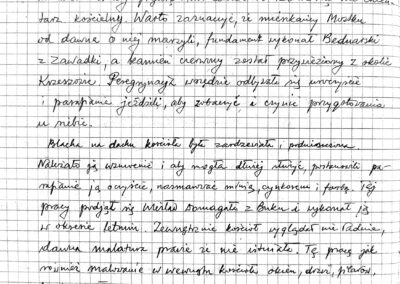 tarz kościelny. Warto zaznaczyć, że mieszkańcy Mostku
od dawna o niej marzyli, fundament wykonał Bednarski
z Zawadki, a kamień czerwony został przywieziony z okolic
Krzeszowic. Peregrynacja wszędzie odbywała się uroczyście
i parafianie jeździli, aby zobaczyć i czynić przygotowania
u siebie.
Blacha na dachu kościoła była zardzewiała i podniszczona.
Należało ją wzmocnić i aby mogła dłużej służyć, postanowili pa-
rafianie ją oczyścić, nasmarować minią, cynkorem i farbą. Tej
pracy podjął się Wiesław Domagała z Buku i wykonał ją
w okresie letnim. Zewnętrznie kościół wyglądał nie ładnie,
dawna malatura prawie że nie istniała. Tę pracę jak
również malowanie w wewnątrz kościoła okien, drzwi, filarów,